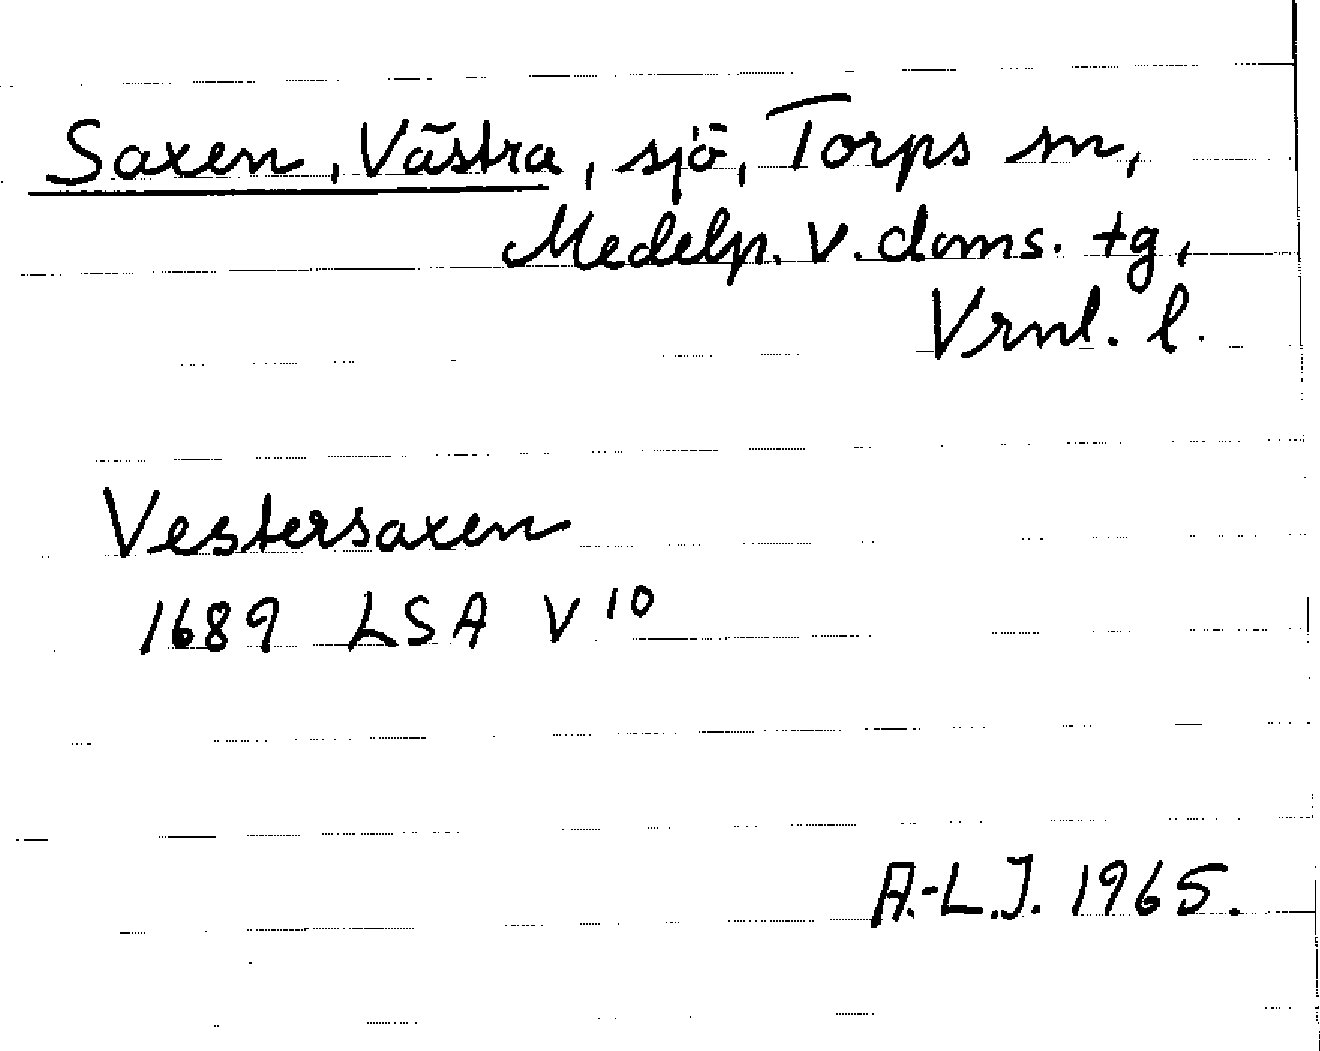 Saxen, Västra, sjö, Torps sn,
Medelp. V. doms. tg,
Vrnl. l.
Vestersaxen
1689 LSA V 10
A.-L.J. 1965.